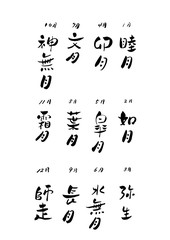 1月
睦月
2月
如月
3月
弥生
4月
卯月
5月
皐月
6月
水無月
7月
文月
8月
葉月
9月
長月
10月
神無月
11月
霜月
12月
師走